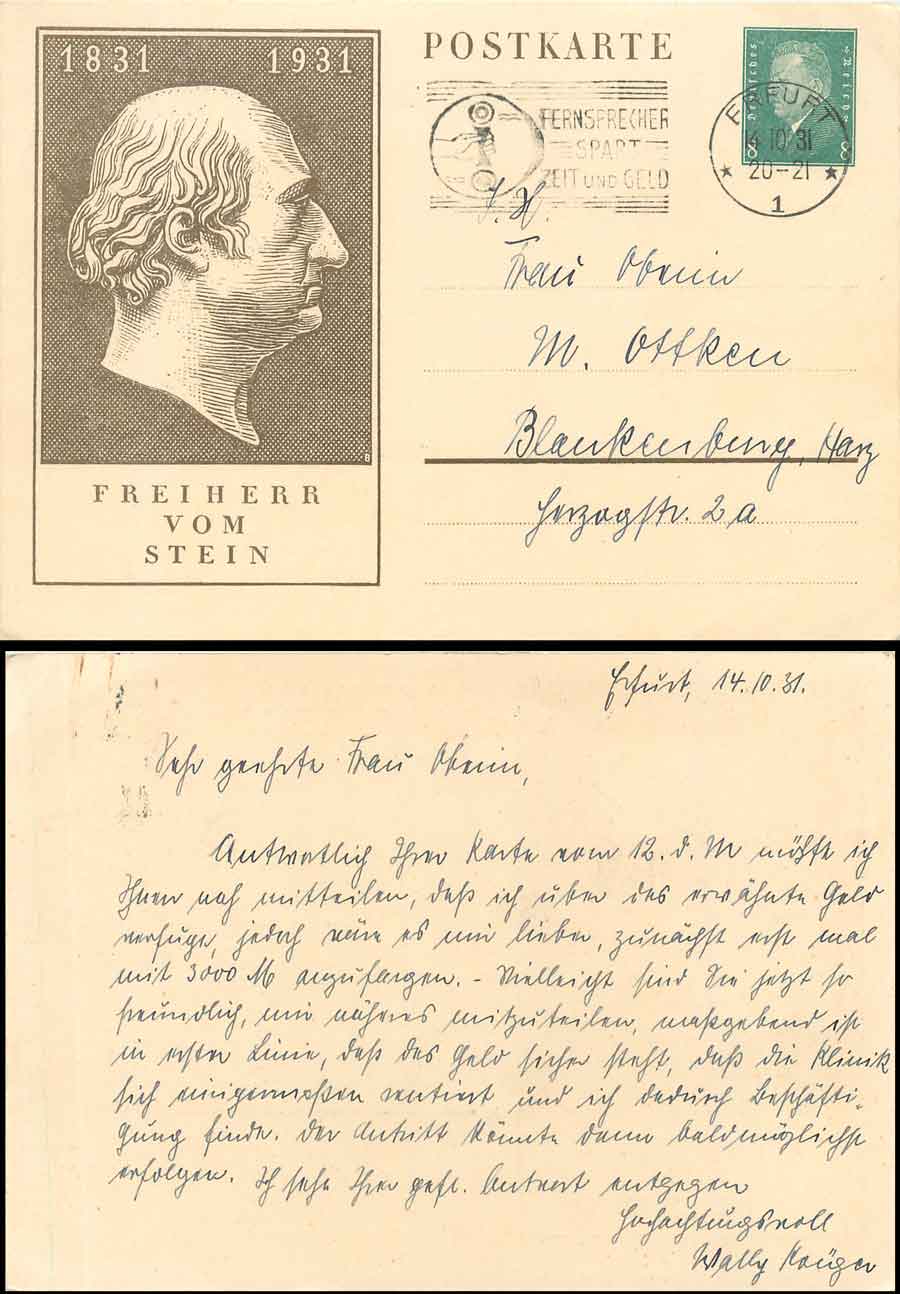 1831 1931
FREIHERR
VOM
STEIN
POSTKARTE
FERNSPRECHER
SPART
ZEIT UND GELD
Deutsches Reich
8 8
ERFURT
14.10.31
20-21
1
Frau Oberin
M. Ottken
Blankenburg, Harz
Herzogstr. 2a
Erfurt, 14.10.31.
Sehr geehrte Frau Oberin,
Antwortlich Ihrer Karte vom 12. d. M möchte ich
Ihnen noch mitteilen, daß ich über das erwähnte Geld
verfüge, jedoch wäre es mir lieber, zunächst erst mal
mit 3000 M anzufangen. - Vielleicht sind Sie jetzt so
freundlich, mir näheres mitzuteilen, maßgebend ist
in erster Linie, daß das Geld sicher steht, daß die Klinik
sich einigermaßen rentiert und ich dadurch Beschäfti-
gung finde. Der Antritt könnte dann baldmöglichst
erfolgen. Ich sehe Ihrer gefl. Antwort entgegen
Hochachtungsvoll
Wally Krüger